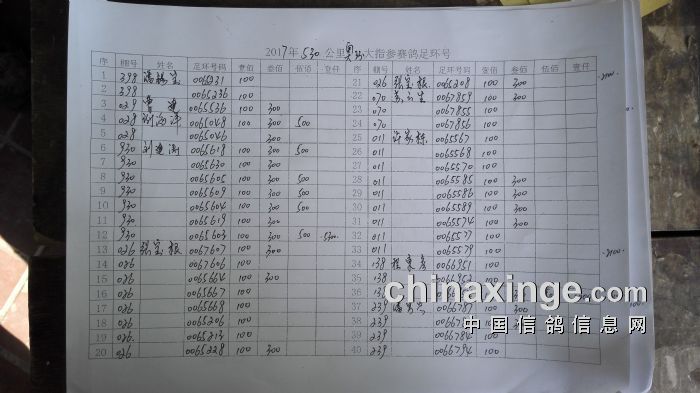 2017年530公里奥孙大指参赛鸽足环号
序 棚号 姓名 足环号码 壹佰 叁佰 伍佰 壹仟 序 棚号 姓名 足环号码 壹佰 叁佰 伍佰 壹仟
1 398 0065231 100 21 026 张宝根 0065208 100 300
2 398 0065236 100 22 070 0067859 100 300
3 029 曹建 0065536 100 300 23 070 0067855 100
4 028 0065048 100 300 500 24 070 0067856 100
5 028 0065046 300 25 011 许家栋 0065567 100
6 930 刘建 0065618 100 300 500 26 011 0065568 100
7 930 0065630 100 300 27 011 0065570 100
8 930 0065605 100 300 500 28 011 0065585 100 300
9 930 0065609 100 300 500 29 011 0065586 100 300
10 930 0065604 100 300 500 30 011 0065589 100 300
11 930 0065619 100 300 31 011 0065574 100 300
12 930 0065603 100 300 500 32 011 0065577 100
13 026 张宝根 0067607 300 33 011 0065579 100
14 026 0067606 100 34 139 程 0066951 100
15 026 0065664 100 300 35 138 0066952
16 026 0065667 100 36
17 026 0065668 100 37 239 潘 100 300
18 026 0065206 100 38 239
19 026 0065213 100 39 239 0066784 100
20 026 0065228 100 300 40 239 0066794 100
chinaxinge.com
中国信鸽信息网